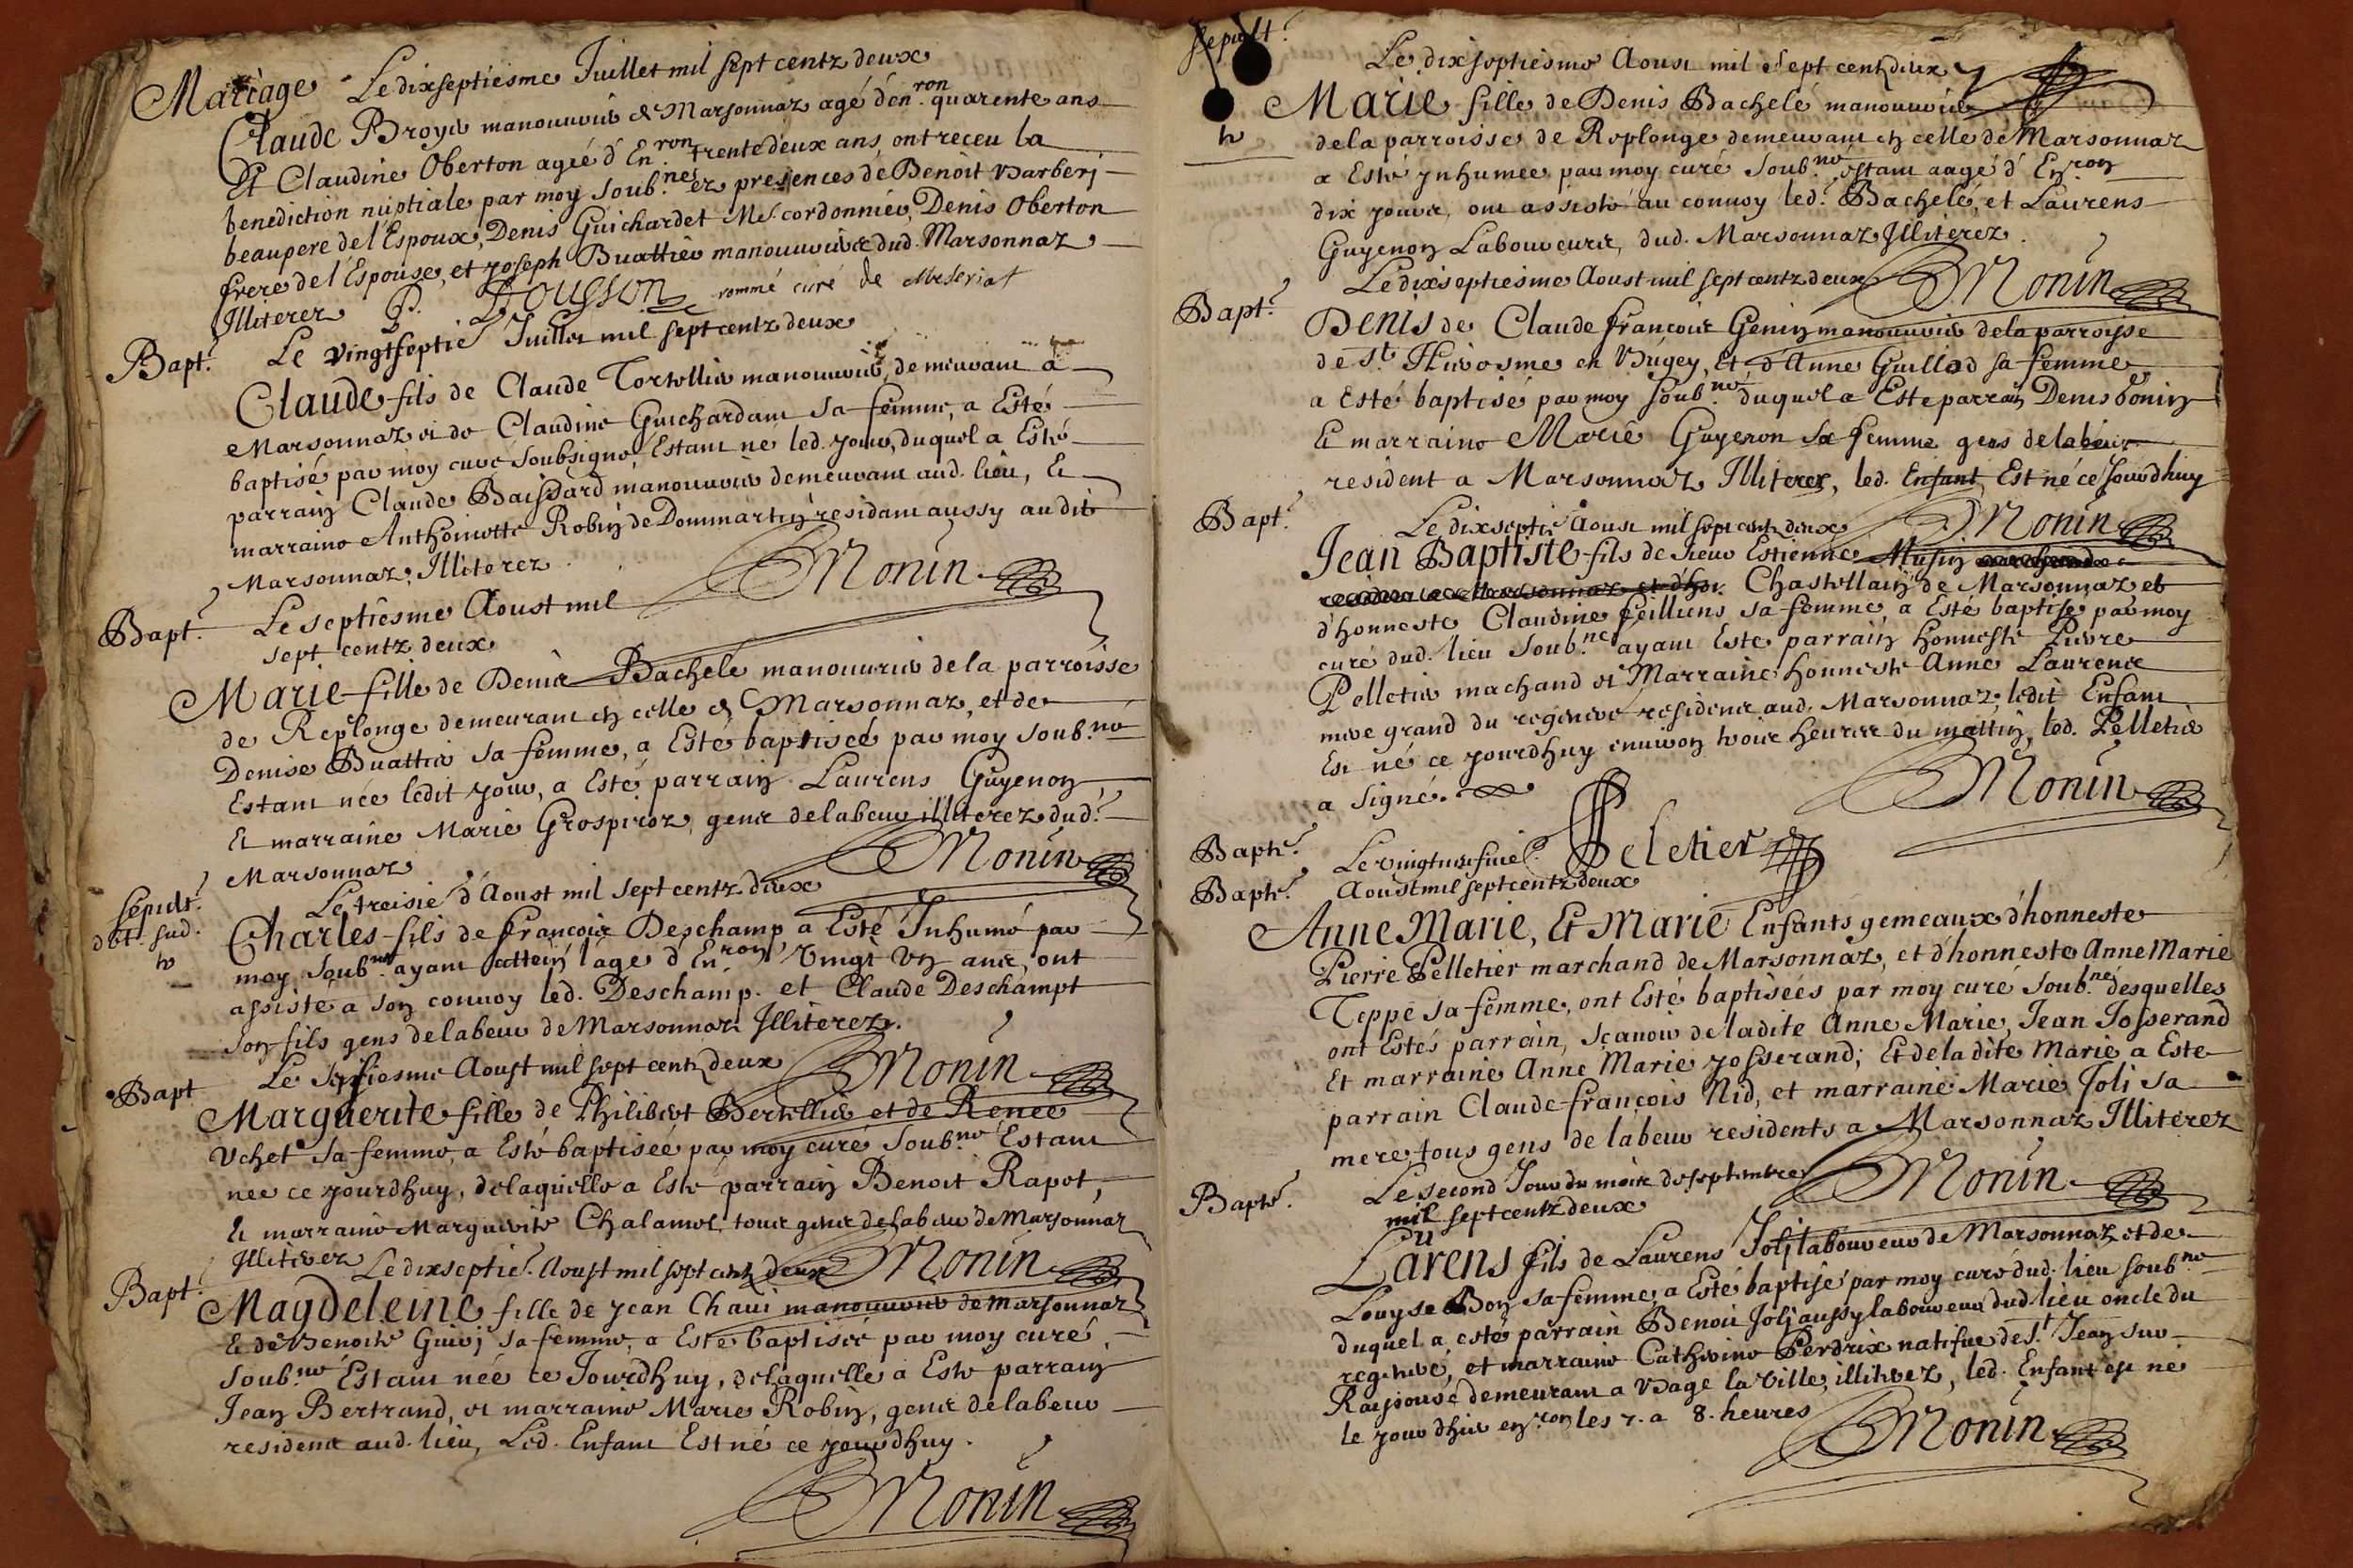 Mariage Le dixseptiesme Juillet mil sept centz deux
Claude Broye manouuvrier de Marsonnaz agé d'en.ron quarente ans
Et Claudine Oberton ageé d'En.ron trente deux ans, ont receu la
benediction nuptiale par moy soub.nes ez presences de Benoit Barberj
beaupere de l'Espoux, Denis Guichardet Me. cordonnier, Denis Oberton
frere de l'Espouse, et joseph Buattier manouuvriers dud. Marsonnaz
Illiterez P. Dousson nommé curé de Meseriat
Bapt. Le vingtseptie Juillet mil sept centz deux
Claude fils de Claude Tortellier manouuvrier, demeurant a
Marsonnaz et de Claudine Guichardant sa femme, a Esté
baptisé par moy curé soubsigné, Estant né led. jour, duquel a Esté
parrain Claude Baissard manouuvrier demeurant aud. lieu, Et
marraine Anthoinette Robin de Dommartin residant aussy audit
Marsonnaz, Illiterez
Monin
Bapt. Le septiesme Aoust mil
sept centz deux
Marie fille de Denis Bachelé manouurier de la parroisse
de Replonge demeurant en celle de Marsonnaz, et de
Denise Buattier sa femme, a Esté baptiseé par moy soub.né
Estant née ledit jour, a Esté parrain Laurens Guyenon
Et marraine Marie Grospiroz, gens de labeur illiterez dud.
Marsonnaz
Monin
Sepult. Le treisie d'Aoust mil sept centz deux
Charles fils de françois Deschamp a Esté Inhumé par
moy soub.né ayant attein l'age d'En.ron Vingt un ans, ont
assisté a son conuoy led. Deschamp. et Claude Deschampt
son fils gens de labeur de Marsonnaz Illiterez.
Monin
Bapt Le Aoust mil sept centz deux
Marguerite fille de Philibert Bertellier et de Renee
Vchet sa femme, a Esté baptiseé par moy curé soub.né Estant
née ce jourdhuy, de laquelle a Esté parrain Benoit Rapot,
Et marraine Marguerite Chalamel tous gens de labeur de Marsonnaz
Illiterez
Monin
Bapt. Le dixseptie. Aoust mil sept centz deux
Magdeleine fille de jean Chaui manouuvrier de Marsonnaz
Et de Benoite Guioj sa femme, a Esté baptisée par moy curé
soub.né Estant née ce Jourdhuy, de laquelle a Esté parrain
Jean Bertrand, et marraine Marie Robin, gens de labeur
residents aud. lieu, Led. Enfant Est né ce jourdhuy.
Monin
Sepult. Le dixseptiesme Aoust mil sept centz deux
Marie fille de Denis Bachelé manouuvrier
de la parroisse de Replonge demeurant en celle de Marsonnaz
a Esté ynhumee par moy curé soub.né estant aagé d'En.ron
dix jours, ont assisté au conuoy led. Bachelé, et Laurens
Guyenon Laboureurs, dud. Marsonnaz Illiterez.
Monin
Bapt. Le dixseptiesme Aoust mil sept centz deux
Denis de Claude françois Genin manouuvrier de la parroisse
de St. Hierosme en Bugey, Et d'Anne Guillod sa femme
a Esté baptisé par moy soub.né duquel a Esté parrain Denis bonin
Et marraine Marie Guyenon sa femme gens de labeur
resident a Marsonnaz Illiterez, led. Enfant Est né ce Jourdhuy
Monin
Bapt. Le dixseptie Aoust mil sept centz deux
Jean Baptiste fils de sieur Estienne Musin
Chastellain de Marsonnaz et
d'honneste Claudine feilliens sa femme a Esté baptise par moy
curé dud. lieu soub.né ayant Esté parrain honneste Pierre
Pelletier machand et Marraine honneste Anne Laurence
mere grand du regeneré residents aud. Marsonnaz; ledit Enfant
Est né ce jourdhuy enuiron trois heures du mattin, led. Pelletier
a signé.
Peletier
Monin
Bapte.
Bapte. Aoust mil sept centz deux
Anne Marie, Et Marie Enfants gemeaux d'honneste
Pierre Pelletier marchand de Marsonnaz, et d'honneste Anne Marie
Teppe sa femme, ont Esté baptiseés par moy curé soub.né desquelles
ont Estés parrain, sçauoir de ladite Anne Marie, Jean Josserand
Et marraine Anne Marie josserand; Et de la dite Marie a Esté
parrain Claude françois Nid, et marraine Marie Joli sa
mere, tous gens de labeur residents a Marsonnaz Illiterez
Monin
Bapte. Le second Jour du mois de septembre
mil sept centz deux
Laurens fils de Laurens Jolj laboureur de Marsonnaz et de
Louyse Bon sa femme, a Esté baptisé par moy curé dud. lieu soub.né
duquel a esté parrain Benoit Jolj aussy laboureur dud. lieu oncle du
regeneré, et marraine Catherine Perdrix natifue de St. Jean sur
Rayssouse demeurant a Bage la ville, illiterez, led. Enfant est né
le jourdhui en.ron les 7. a 8. heures
Monin